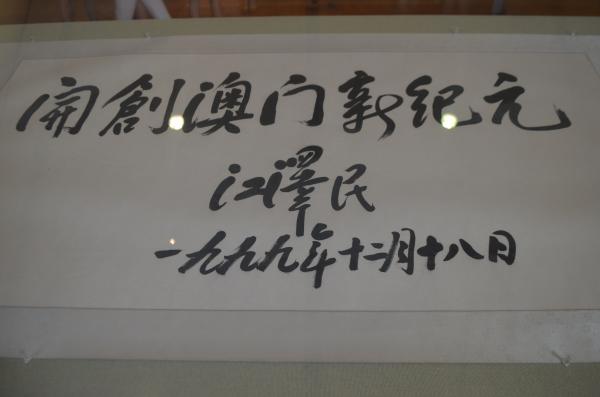 開創澳门新纪元
江澤民
一九九九年十二月十八日